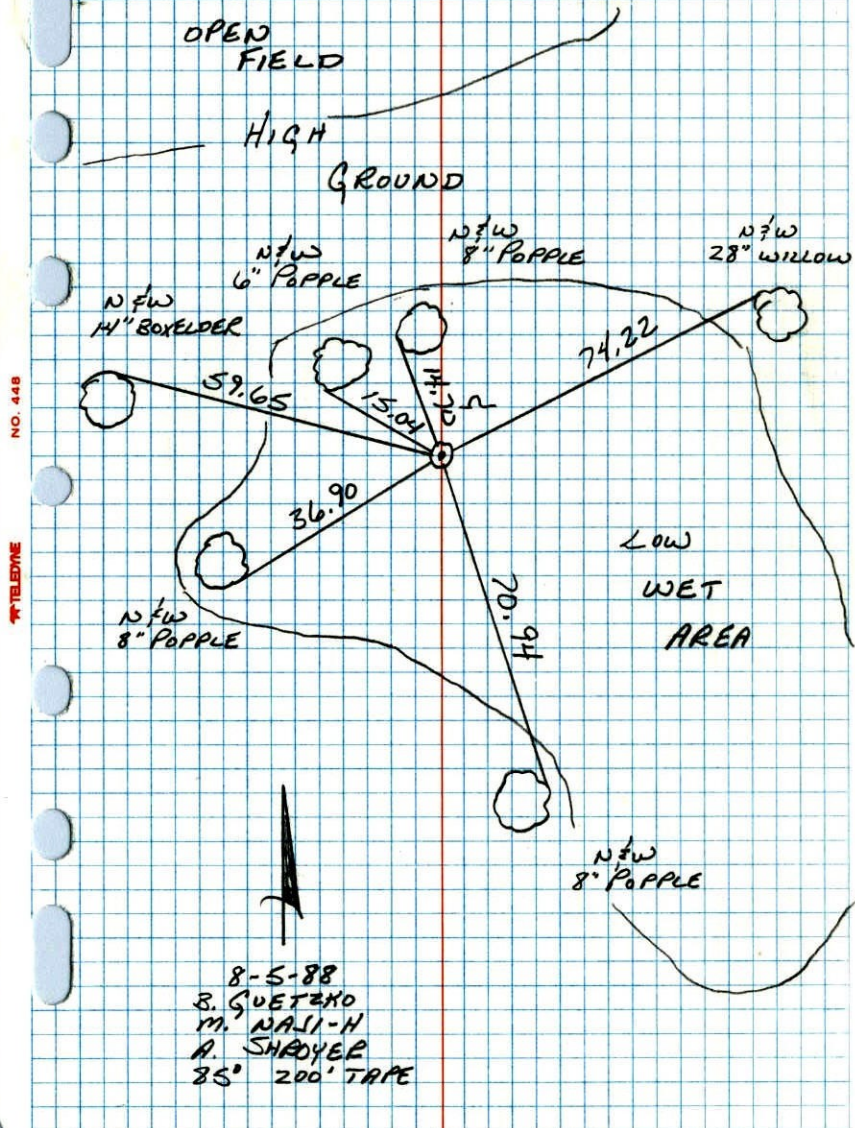 OPEN
FIELD
HIGH
GROUND
N & W
6" POPPLE
N & W
8" POPPLE
N & W
28" WILLOW
N & W
14" BOXELDER
59.65
15.04
14.70
74.22
36.90
70.94
LOW
WET
AREA
N & W
8" POPPLE
N & W
8" POPPLE
8-5-88
B. GUETZKO
M. NAJI-H
A. SHROYER
85° 200' TAPE
NO. 448
TELEDYNE